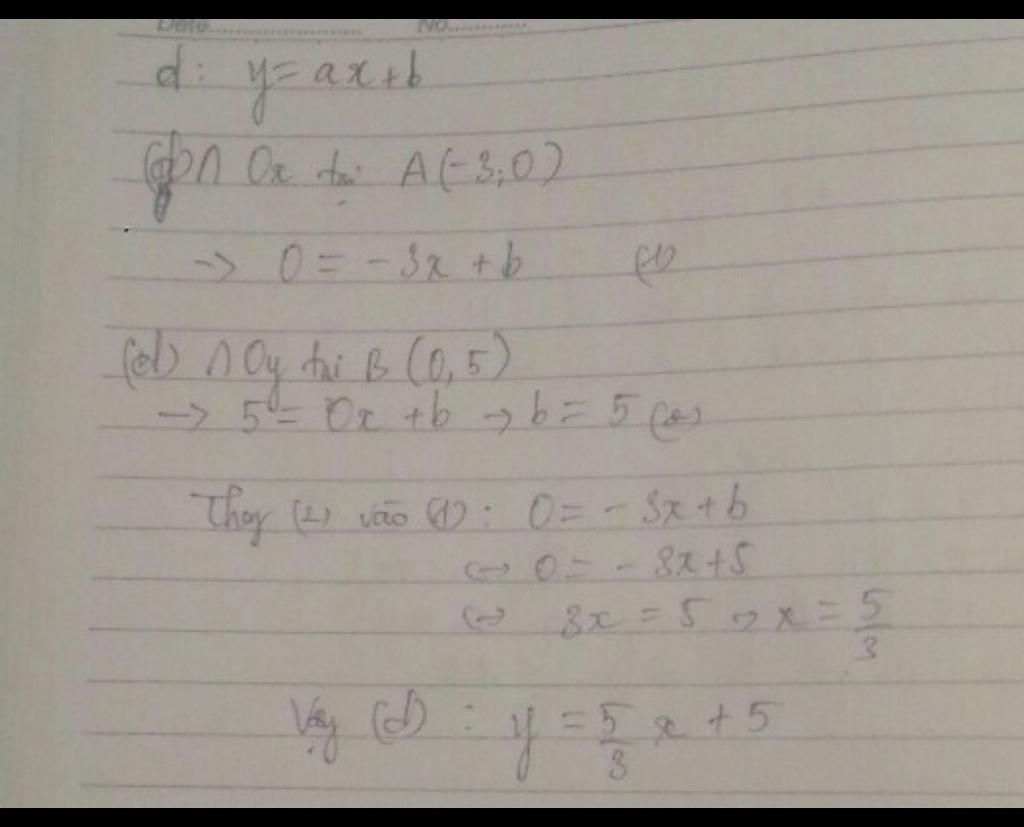 Date.................... No..............
d: y = ax + b
(d) ∩ Ox tại A(-3;0)
→ 0 = -3x + b (1)
(d) ∩ Oy tại B (0,5)
→ 5 = 0x + b → b = 5 (2)
Thay (2) vào (1): 0 = -3x + b
↔ 0 = -3x + 5
↔ 3x = 5 → x = 5/3
Vậy (d) : y = 5/3 x + 5